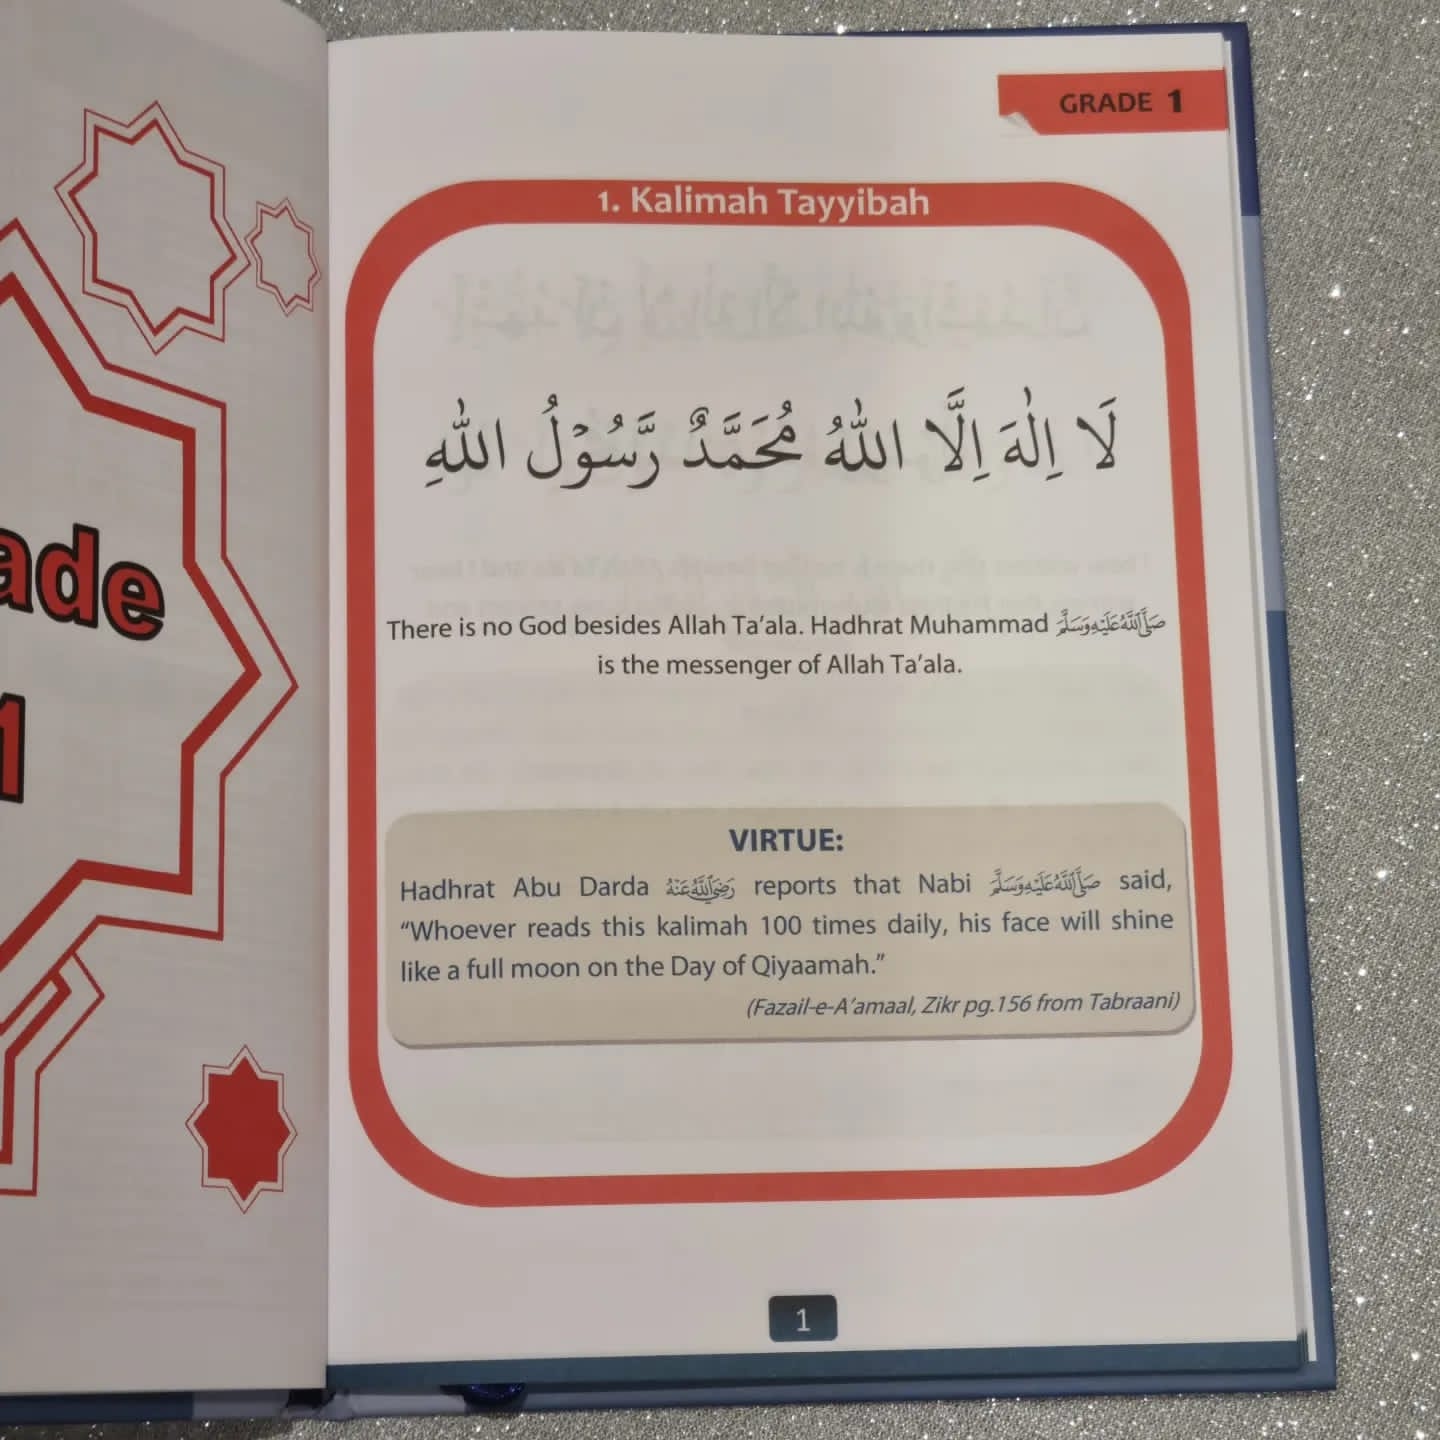 ade
1
GRADE 1
1. Kalimah Tayyibah
لَا اِلٰهَ اِلَّا اللّٰهُ مُحَمَّدٌ رَّسُوْلُ اللّٰهِ
There is no God besides Allah Ta’ala. Hadhrat Muhammad صَلَّى اللّٰهُ عَلَيْهِ وَسَلَّمَ
is the messenger of Allah Ta’ala.
VIRTUE:
Hadhrat Abu Darda رَضِيَ اللّٰهُ عَنْهُ reports that Nabi صَلَّى اللّٰهُ عَلَيْهِ وَسَلَّمَ said,
“Whoever reads this kalimah 100 times daily, his face will shine
like a full moon on the Day of Qiyaamah.”
(Fazail-e-A’amaal, Zikr pg.156 from Tabraani)
1